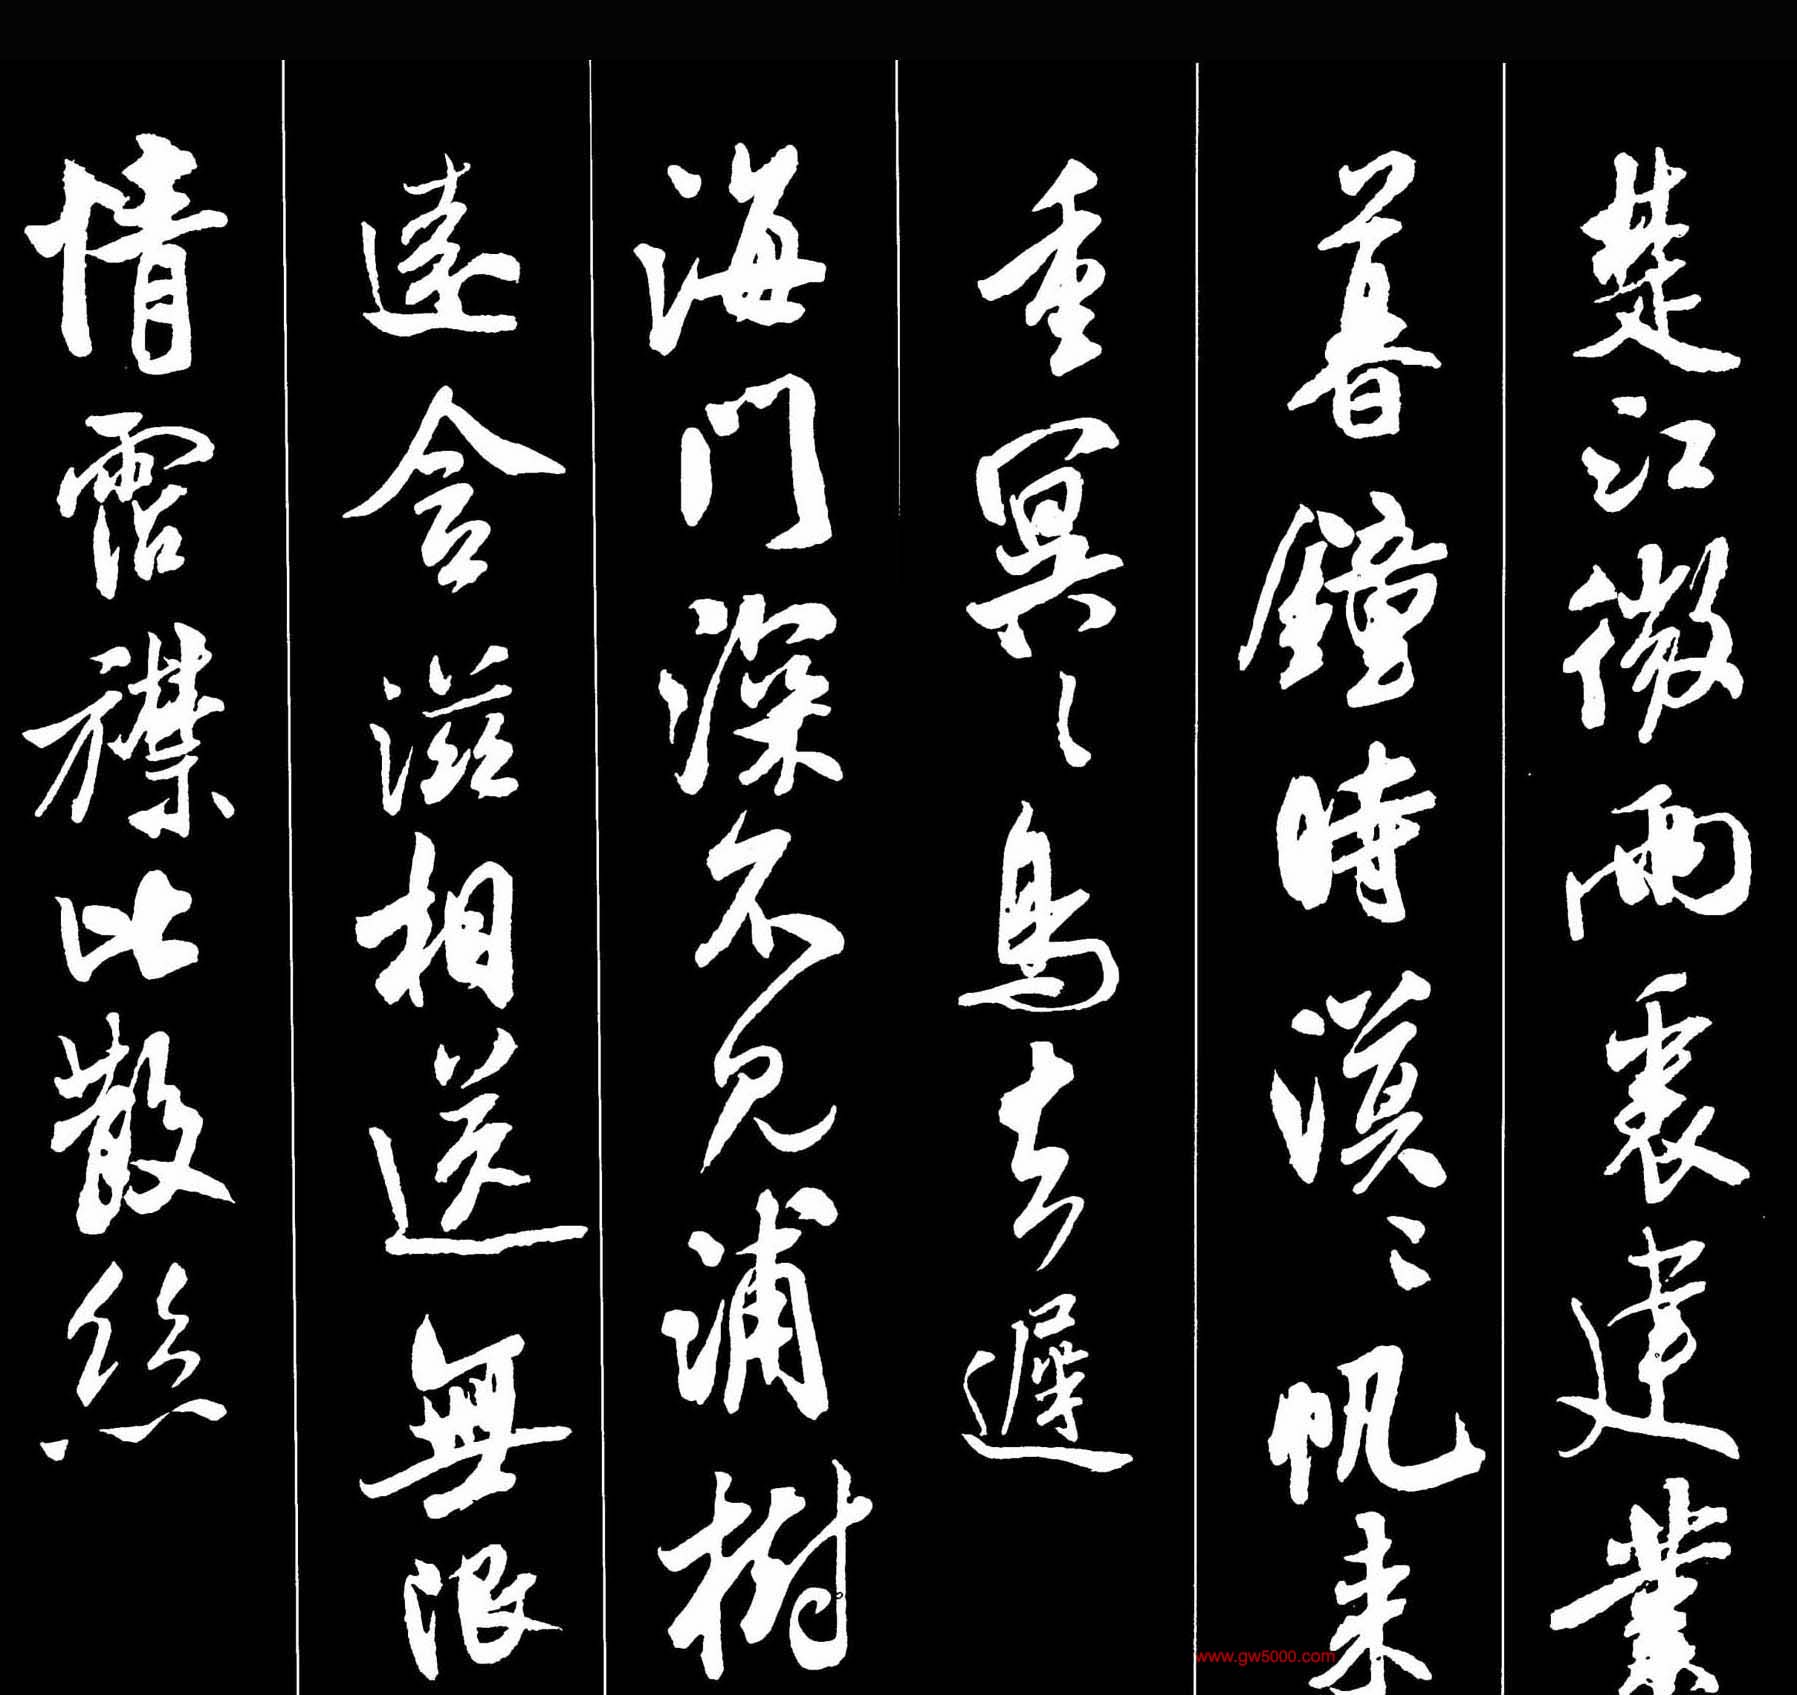 楚江微雨裏建業
暮鐘時漠〻帆来
重冥〻鳥去遲
海門深不見浦樹
遠含滋相送無限
情霑襟比散絲
www.gw5000.com